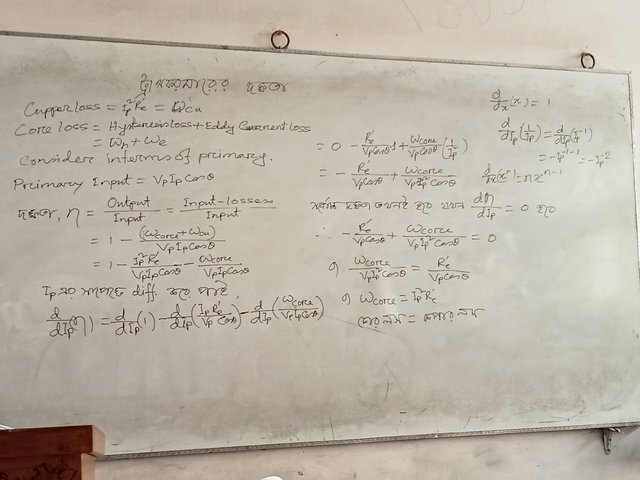 ট্রান্সফরমারের দক্ষতা
Cupper loss = I_p² R_e' = W_cu
Core loss = Hysteresis loss + Eddy Current loss
= W_h + W_e
Consider interms of primary.
Primary Input = V_p I_p Cosθ
দক্ষতা, η = Output/Input = Input-losses/Input
= 1 - (W_core + W_cu)/(V_p I_p Cosθ)
= 1 - I_p² R_e'/(V_p I_p Cosθ) - W_core/(V_p I_p Cosθ)
I_p এর সাপেক্ষে diff. করে পাই,
d/dI_p (η) = d/dI_p (1) - d/dI_p (I_p R_e'/(V_p Cosθ)) - d/dI_p (W_core/(V_p I_p Cosθ))
= 0 - R_e'/(V_p Cosθ) · 1 + W_core/(V_p Cosθ) (1/I_p²)
= - R_e'/(V_p Cosθ) + W_core/(V_p I_p² Cosθ)
সর্বোচ্চ দক্ষতা তখনই হবে যখন dη/dI_p = 0 হবে
∴ - R_e'/(V_p Cosθ) + W_core/(V_p I_p² Cosθ) = 0
বা W_core/(V_p I_p² Cosθ) = R_e'/(V_p Cosθ)
বা W_core = I_p² R_e'
কোর লস = কপার লস
d/dx (x) = 1
d/dI_p (1/I_p) = d/dI_p (I_p⁻¹)
= -I_p⁻¹⁻¹ = -I_p⁻²
d/dx (xⁿ) = n xⁿ⁻¹